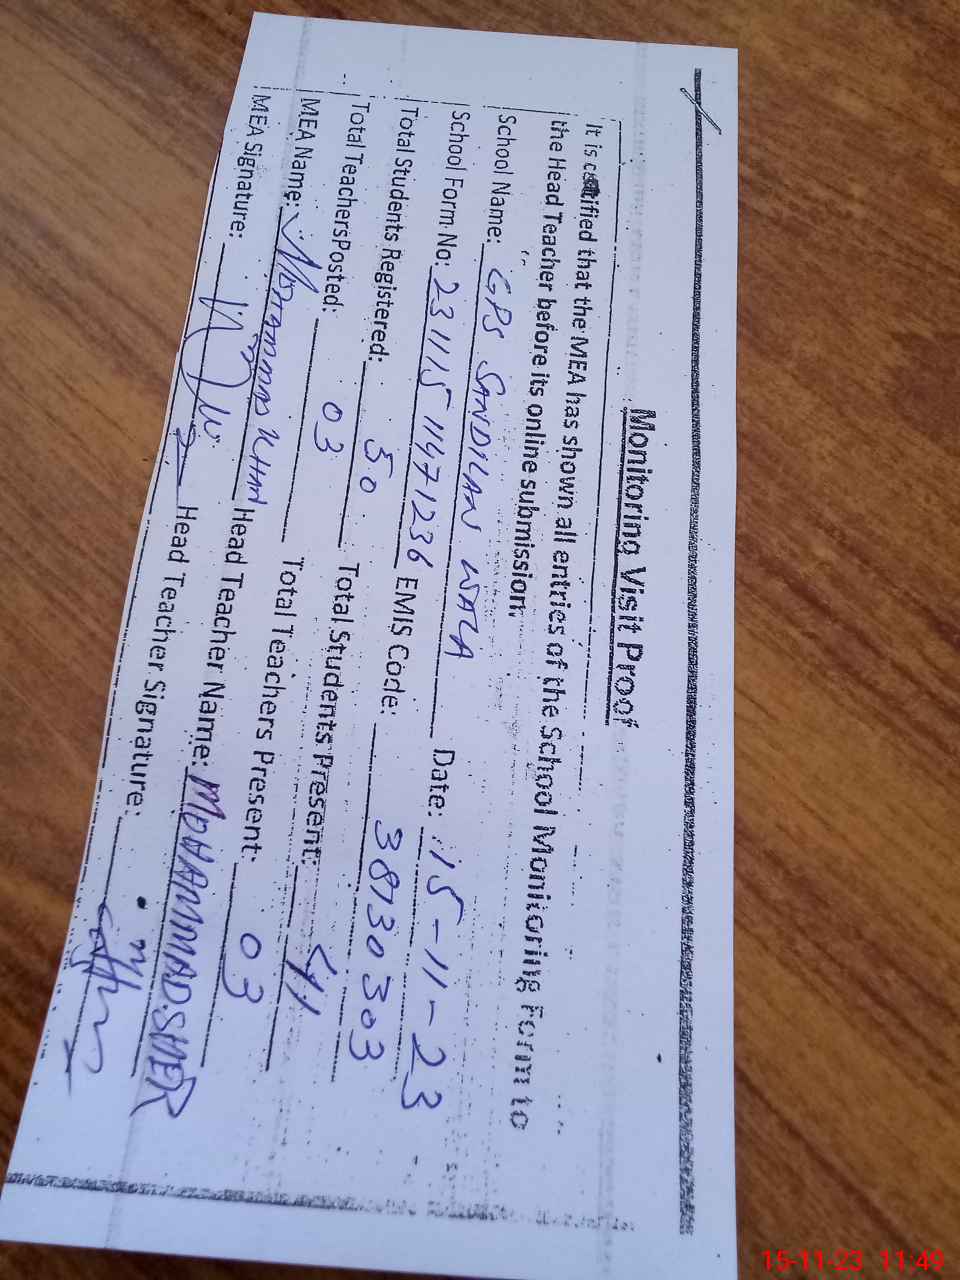 Monitoring Visit Proof
It is certified that the MEA has shown all entries of the School Monitoring Form to
the Head Teacher before its online submission.
School Name: GPS SANDILAN WALA Date: 15-11-23
School Form No: 23111511471236 EMIS Code: 38730303
Total Students Registered: 50 Total Students Present: 41
Total TeachersPosted: 03 Total Teachers Present: 03
MEA Name: Mohammad Khan Head Teacher Name: MOHAMMAD SHER
MEA Signature: Head Teacher Signature:
15-11-23 11:49